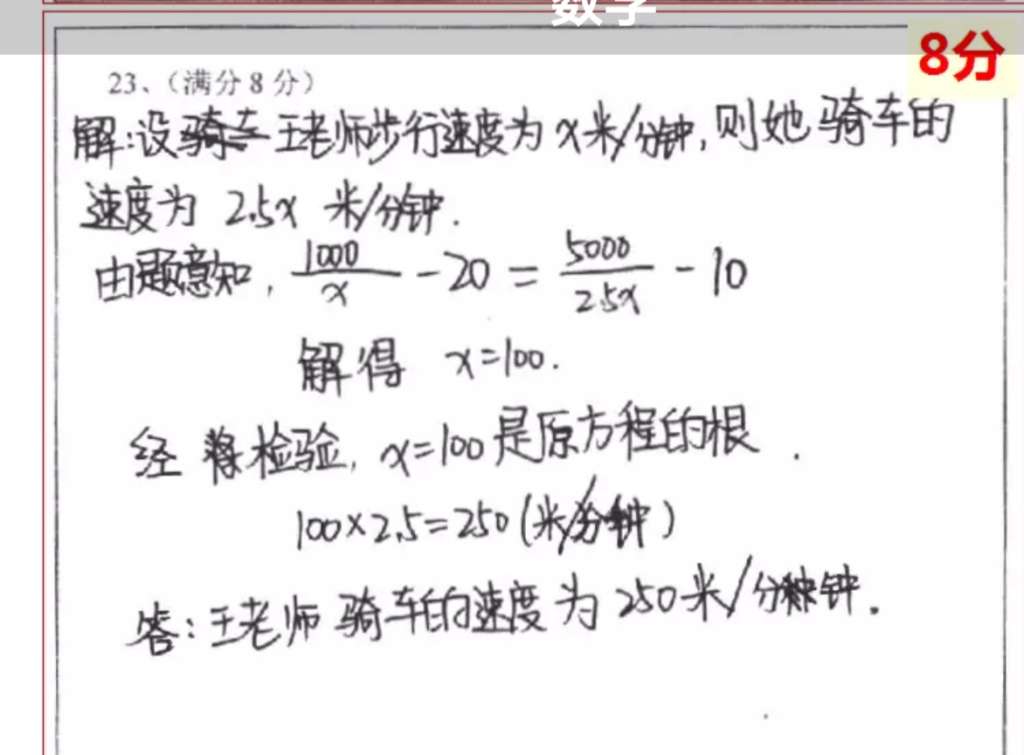 数学
8分
23、（满分8分）
解:设王老师步行速度为x米/分钟,则她骑车的
速度为 2.5x 米/分钟.
由题意知, 1000/x - 20 = 5000/2.5x - 10
解得 x=100.
经检验, x=100是原方程的根.
100×2.5=250(米/分钟)
答:王老师骑车的速度为250米/分钟.